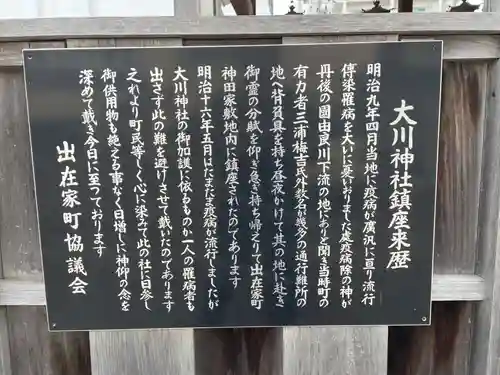 大川神社鎮座来歴
明治九年四月当地に疫病が廣況に亘り流行
伝染罹病を大いに憂いおりました処疫病除の神が
丹後の國由良川下流の地にありと聞き当時町の
有力者三浦梅吉氏外数名が幾多の通行難所の
地へ背負具を持ち昼夜かけて其の地に赴き
御霊の分賦を仰ぎ急ぎ持ち帰とりて出在家町
神田家敷地内に鎮座されたのであります
明治十六年五月はたまたま疫病が流行しましたが
大川神社の御加護に依るものか一人の罹病者も
出さず此の難を避けさせて戴いたのであります
之れより町民等しく心に染みて此の社に日参し
御供用物も絶へる事なく日増しに神仰の念を
深めて戴き今日に至っております
出在家町協議会